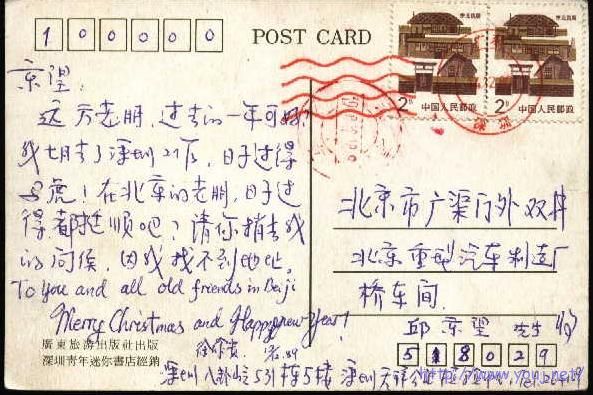 100000
POST CARD
中国人民邮政
中国人民邮政
深圳
京望:
远方老朋,过去的一年可好?
我七月去了深圳工作,日子过得
马虎!在北京的老朋,日子过
得都挺顺吧?请你捎去我
的问候,因我找不到地址。
To you and all old friends in Beiji
Merry Christmas and Happy new Year!
廣東旅游出版社出版
深圳青年迷你書店經銷
北京市广渠门外双井
北京重型汽车制造厂
桥车间
邱京望 先生 收
518029
深圳八卦岭531栋5楼 深圳